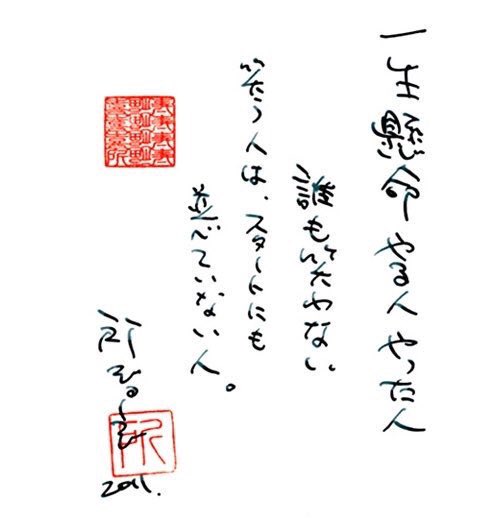 一生懸命やる人やった人
誰も笑わない
笑う人は、スタートにも
並べていない人。
所ジョージ
2011.
所